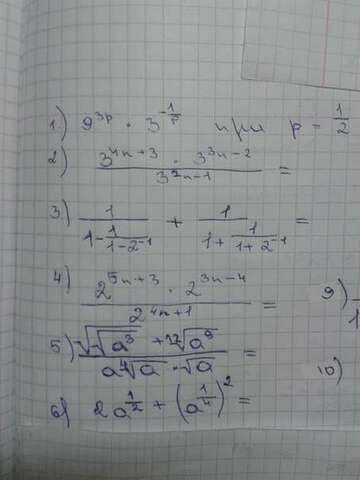 1.) 9^{3p} · 3^{-\frac{1}{p}} при p = \frac{1}{2}
2.) \frac{3^{4n+3} · 3^{3n-2}}{3^{2n-1}} =
3.) \frac{1}{1-\frac{1}{1-2^{-1}}} + \frac{1}{1+\frac{1}{1+2^{-1}}} =
4) \frac{2^{5n+3} · 2^{3n-4}}{2^{4n+1}} = 9)
5.) = 10)
6) 2a^{\frac{1}{2}} + (a^{\frac{1}{4}})^2 =